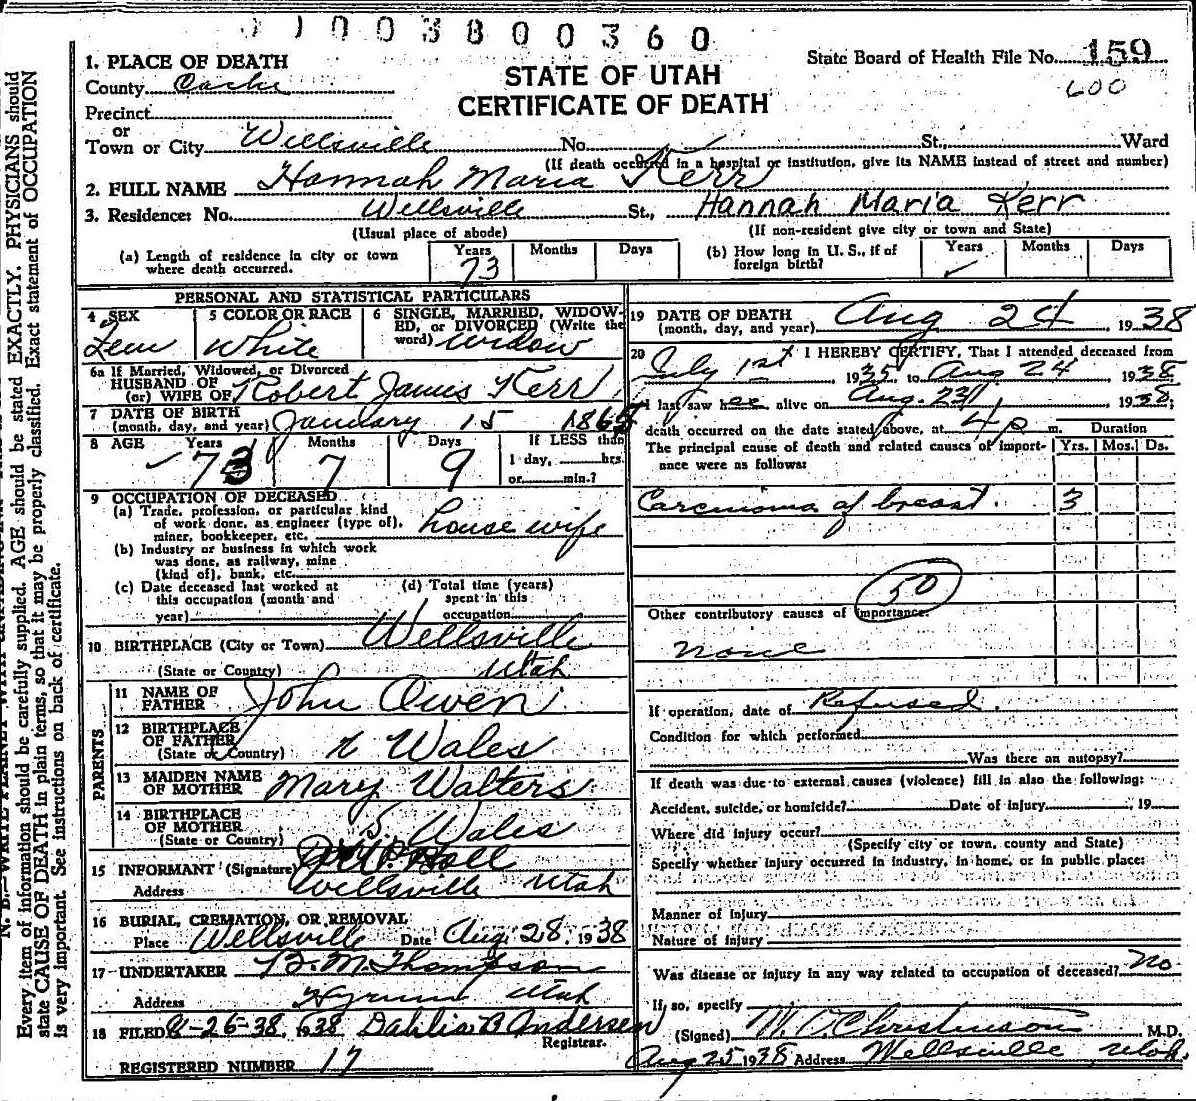 1003800360
State Board of Health File No. 159
600
STATE OF UTAH
CERTIFICATE OF DEATH
1. PLACE OF DEATH
County Cache
Precinct
or
Town or City Wellsville No. St., Ward
(If death occurred in a hospital or institution, give its NAME instead of street and number)
2. FULL NAME Hannah Maria Kerr
3. Residence: No. Wellsville St., Hannah Maria Kerr
(Usual place of abode) (If non-resident give city or town and State)
(a) Length of residence in city or town where death occurred. Years 73 Months Days
(b) How long in U. S., if of foreign birth? Years ✓ Months Days
PERSONAL AND STATISTICAL PARTICULARS
4 SEX Fem
5 COLOR OR RACE White
6 SINGLE, MARRIED, WIDOW-
ED, or DIVORCED (Write the
word) widow
6a If Married, Widowed, or Divorced
HUSBAND OF
(or) WIFE OF Robert James Kerr
7 DATE OF BIRTH
(month, day, and year) January 15 1865
8 AGE Years 73 Months 7 Days 9 If LESS than
1 day, hrs.
or min.?
9 OCCUPATION OF DECEASED
(a) Trade, profession, or particular kind
of work done, as engineer (type of),
miner, bookkeeper, etc. house wife
(b) Industry or business in which work
was done, as railway, mine
(kind of), bank, etc.
(c) Date deceased last worked at
this occupation (month and
year)
(d) Total time (years)
spent in this
occupation
10 BIRTHPLACE (City or Town) Wellsville
(State or Country) Utah
PARENTS
11 NAME OF
FATHER John Owen
12 BIRTHPLACE
OF FATHER
(State or Country) N Wales
13 MAIDEN NAME
OF MOTHER Mary Walters
14 BIRTHPLACE
OF MOTHER
(State or Country) S. Wales
15 INFORMANT (Signature) Hall
Address Wellsville Utah
16 BURIAL, CREMATION, OR REMOVAL
Place Wellsville Date Aug 28, 1938
17 UNDERTAKER B. M. Thompson
Address Hyrum Utah
18 FILED 8-26-38, 1938 Dahlia B Andersen
Registrar.
REGISTERED NUMBER 17
19 DATE OF DEATH
(month, day, and year) Aug 24, 1938
20 I HEREBY CERTIFY, That I attended deceased from
July 1st 1935, to Aug 24 1938
I last saw her alive on Aug. 23 1938;
death occurred on the date stated above, at 4 p m. Duration
The principal cause of death and related causes of import-
ance were as follows: Yrs. Mos. Ds.
Carcinoma of breast. 3
50
Other contributory causes of importance:
none
If operation, date of Refused.
Condition for which performed
Was there an autopsy?
If death was due to external causes (violence) fill in also the following:
Accident, suicide, or homicide? Date of injury , 19
Where did injury occur?
(Specify city or town, county and State)
Specify whether injury occurred in industry, in home, or in public place:
Manner of Injury
Nature of Injury
Was disease or injury in any way related to occupation of deceased? No
If so, specify
(Signed) W. O. Christenson M.D.
Aug 25 1938 Address Wellsville Utah.
Every item of information should be carefully supplied. AGE should be stated EXACTLY. PHYSICIANS should
state CAUSE OF DEATH in plain terms, so that it may be properly classified. Exact statement of OCCUPATION
is very important. See instructions on back of certificate.